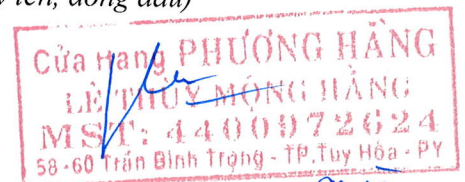 tên, đóng dấu)
Cửa Hàng PHƯƠNG HẰNG
LÊ THÙY MỘNG HẰNG
MST: 4400972624
58-60 Trần Bình Trọng - TP.Tuy Hòa - PY